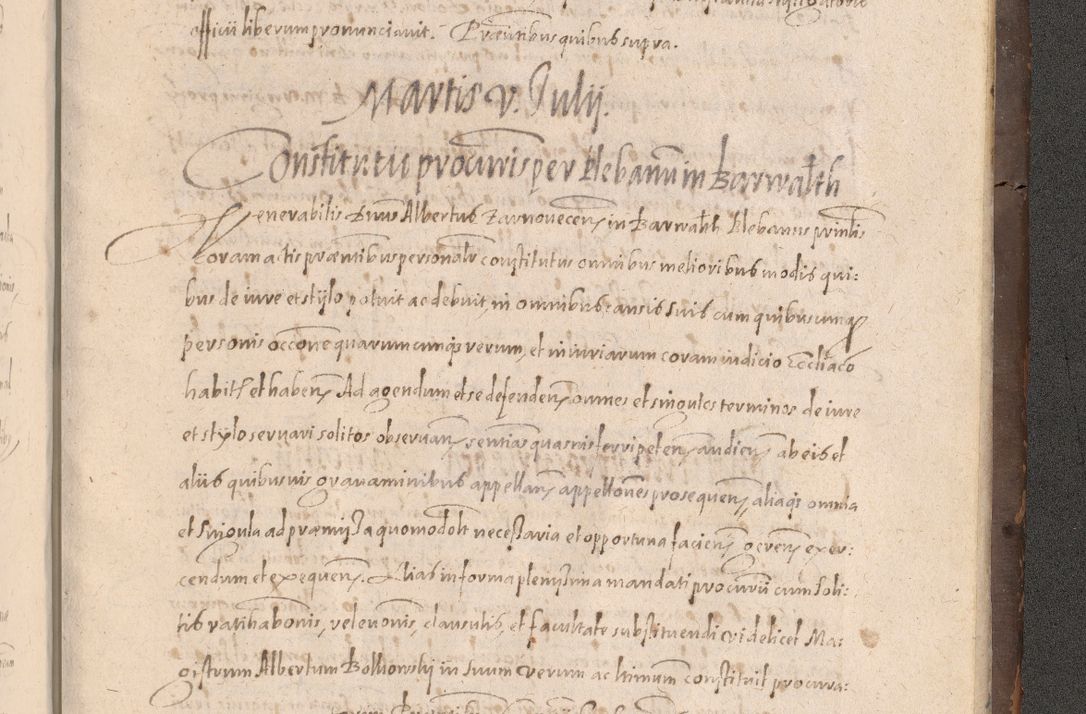 officii liberum pronunciavit. Præntibus quibus supra.
Martis v. Julii.
Constitutii procuris per Plebanum in Barwałth
Venerabilis Dnus Albertus Zarnovecen in Barwałth Plebanus prinlis
coram actis præntibus personalr constitutus omnibus melioribus modis qui:
bus de iure et stylo potuit ac debuit, in omnibus causis suis cum quibuscumq
personis occone quarumcumqs rerum, et iniuriarum coram iudicio Eccliaco
habit et haben Ad agendum et se defenden omnes et singulos terminos de iure
et stylo servari solitos observan, sentias quasvis ferri peten, audien, ab eis et
aliis quibusvis gravaminibus appellan, appellones prosequen, aliaqs omnia
et singula ad præmissa quomodolt necessaria et opportuna facien, geren, exer:
cendum et exequen. Alias in forma plenissima mandati procurii cum soli:
tis ratihabonis, relevonis, clausulis, et facultate substituendi videlicet Ma:
gistrum Albertum in suum verum ac ltimum constituit procura: